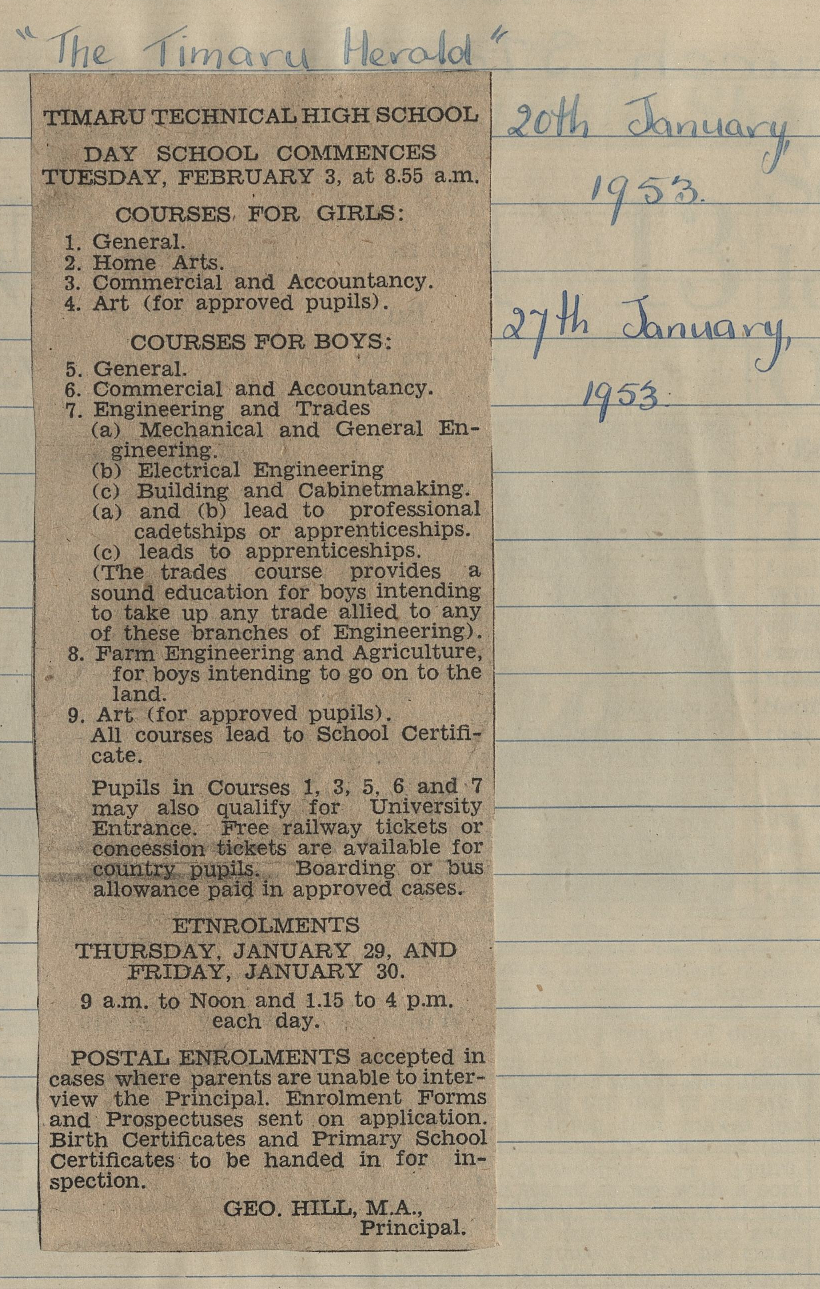 "The Timaru Herald"
20th January,
1953.
27th January,
1953.
TIMARU TECHNICAL HIGH SCHOOL
DAY SCHOOL COMMENCES
TUESDAY, FEBRUARY 3, at 8.55 a.m.
COURSES FOR GIRLS:
1. General.
2. Home Arts.
3. Commercial and Accountancy.
4. Art (for approved pupils).
COURSES FOR BOYS:
5. General.
6. Commercial and Accountancy.
7. Engineering and Trades
(a) Mechanical and General En-
gineering.
(b) Electrical Engineering
(c) Building and Cabinetmaking.
(a) and (b) lead to professional
cadetships or apprenticeships.
(c) leads to apprenticeships.
(The trades course provides a
sound education for boys intending
to take up any trade allied to any
of these branches of Engineering).
8. Farm Engineering and Agriculture,
for boys intending to go on to the
land.
9. Art (for approved pupils).
All courses lead to School Certifi-
cate.
Pupils in Courses 1, 3, 5, 6 and 7
may also qualify for University
Entrance. Free railway tickets or
concession tickets are available for
country pupils. Boarding or bus
allowance paid in approved cases.
ETNROLMENTS
THURSDAY, JANUARY 29, AND
FRIDAY, JANUARY 30.
9 a.m. to Noon and 1.15 to 4 p.m.
each day.
POSTAL ENROLMENTS accepted in
cases where parents are unable to inter-
view the Principal. Enrolment Forms
and Prospectuses sent on application.
Birth Certificates and Primary School
Certificates to be handed in for in-
spection.
GEO. HILL, M.A.,
Principal.